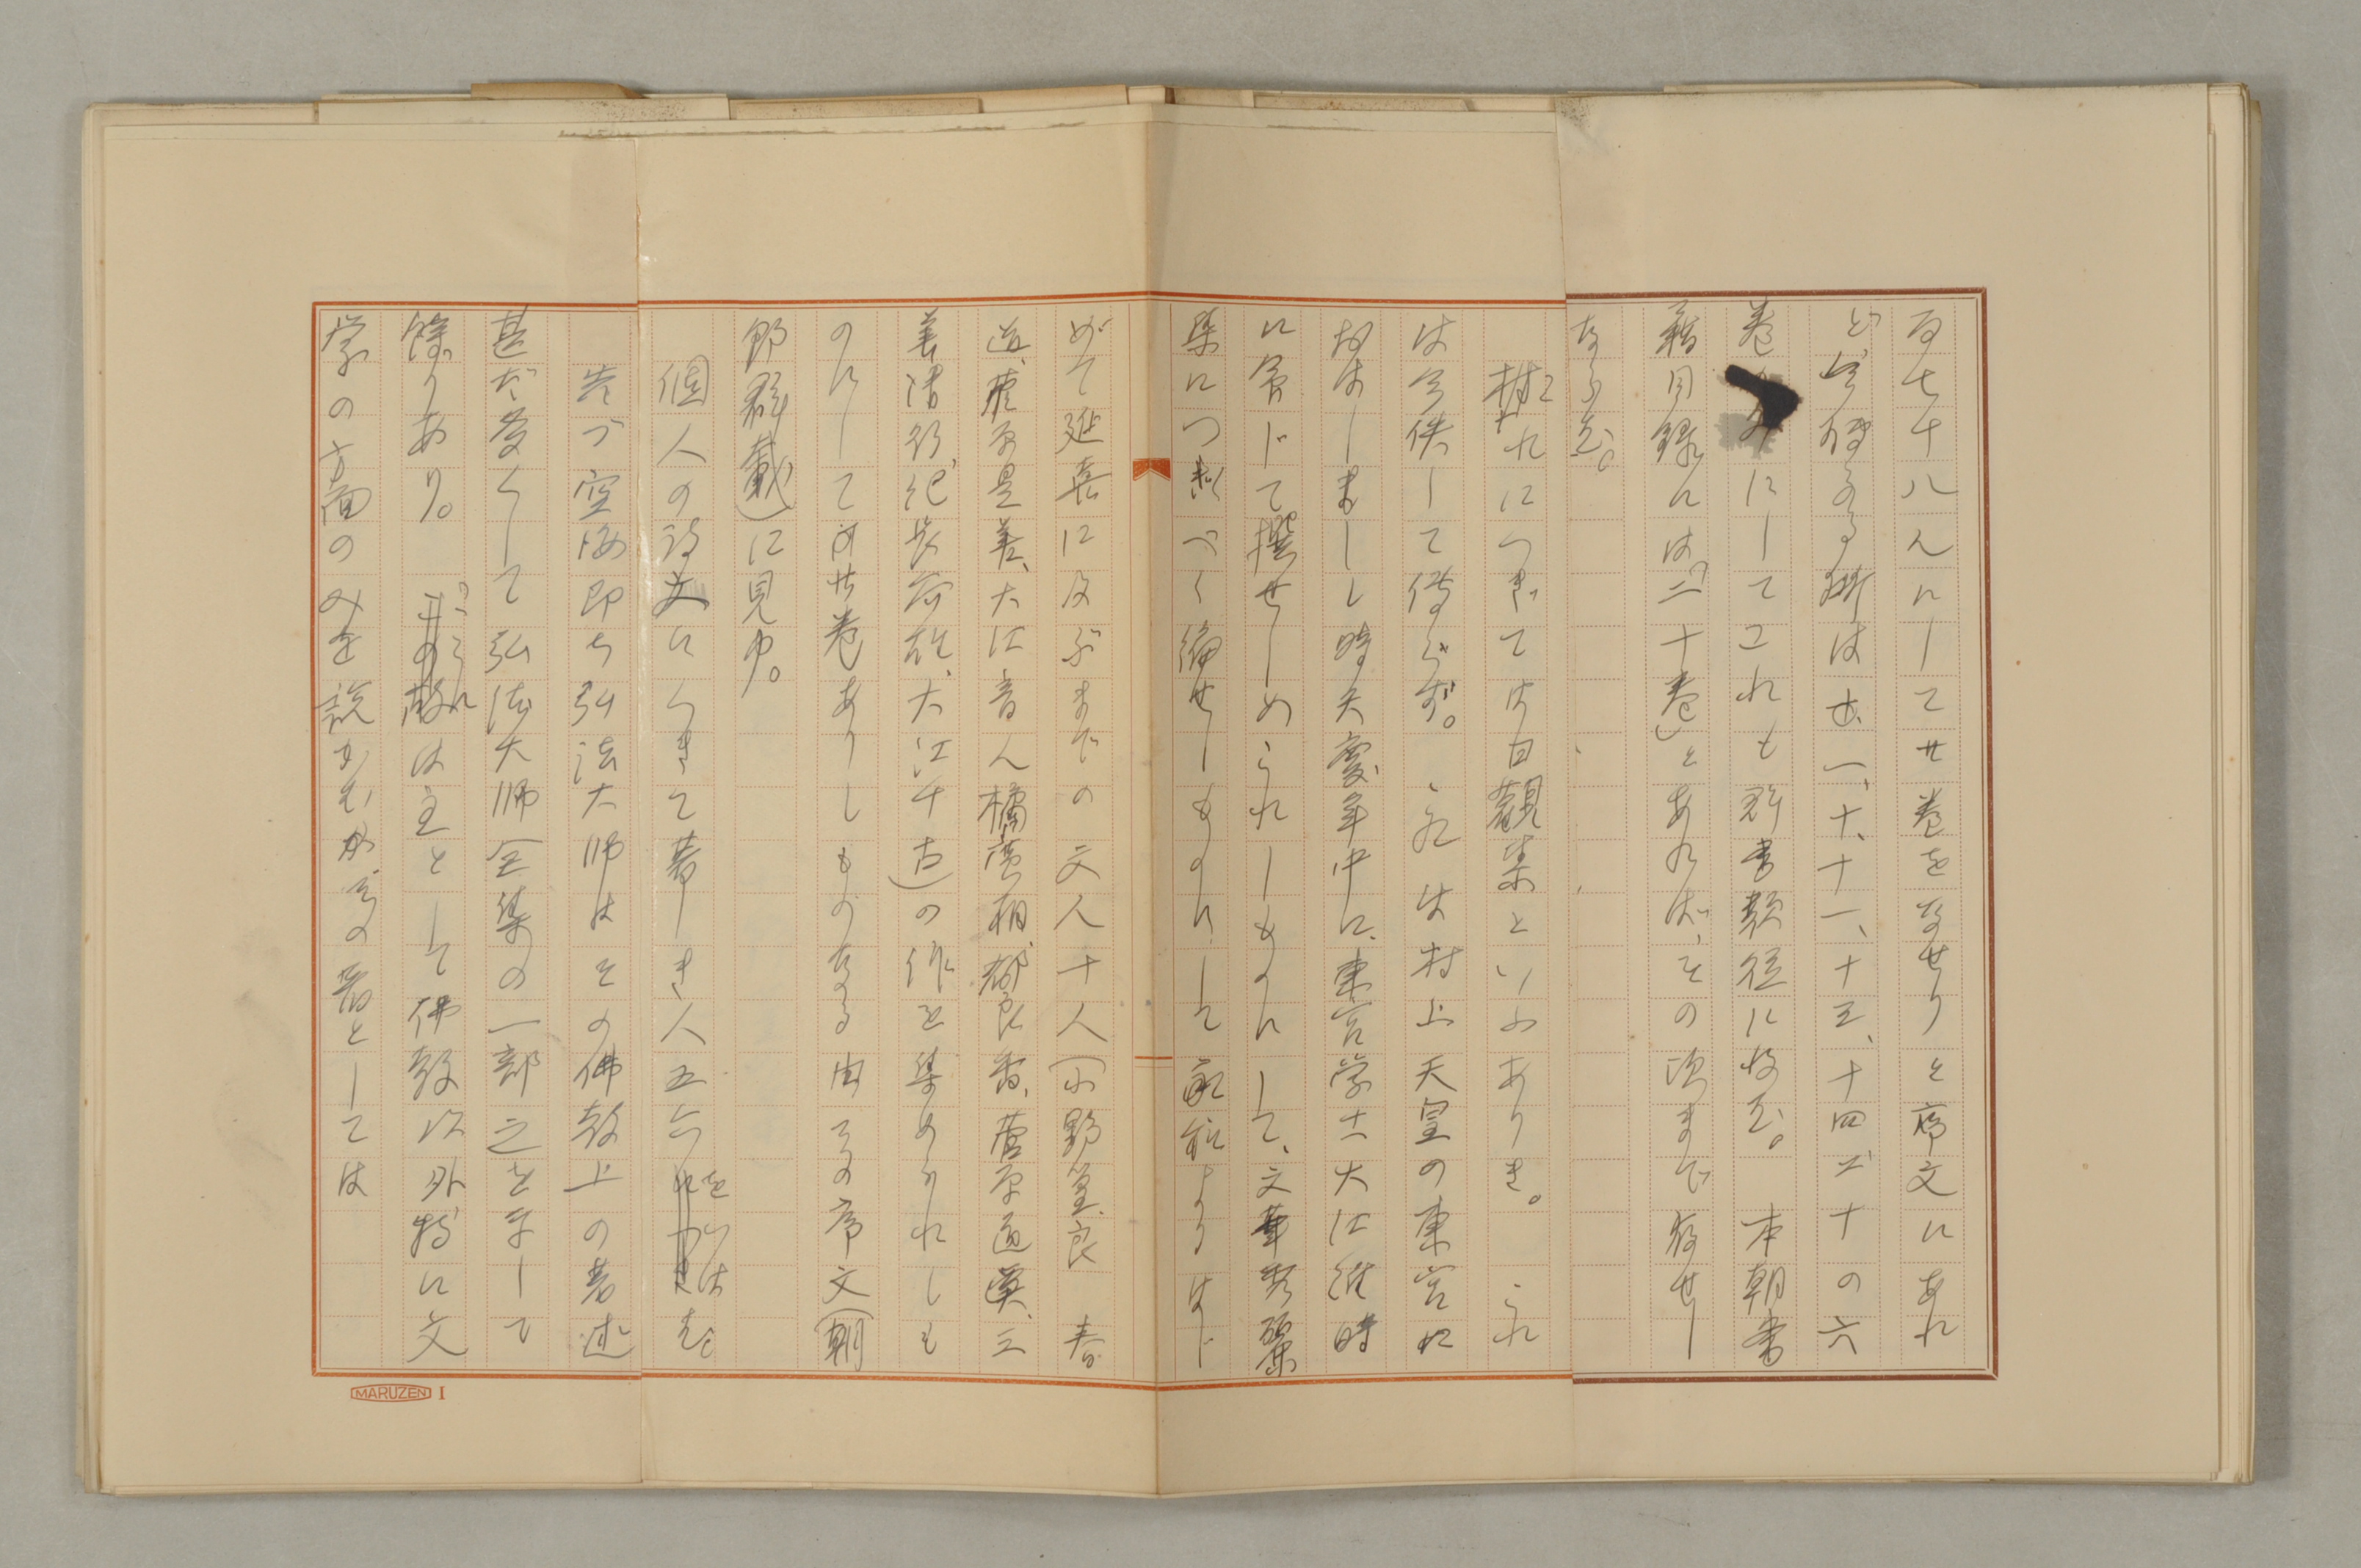 百七十八人にして廿巻をなせりと序文にあれ
ど今存する所は巻一、十、十一、十三、十四、二十の六
巻のみにしてこれも群書類従に収む。本朝書
籍目録には「二十巻」とあれば、その頃まで存せし
ならむ。
これにつぎては日観集といふありき。これ
は今佚して傳らず。これは村上天皇の東宮に
おはしましし時天慶年中に、東宮学士大江維時
に命じて撰せしめられしものにして、文華秀麗
集につぎつべく編せしものにして承和よりはじ
めて延喜に及ぶまでの文人十人（小野篁、良春
道、菅原是善、大江音人、橘廣相、都良香、菅原道真、三
善清行、紀長谷雄、大江千古）の作を集められしも
のにして詩廿巻ありしものなる由その序文（朝
野群載）に見ゆ。
個人の詩文につきて著しき人五六をいはむ。
先づ空海即ち弘法大師はその佛教上の著述
甚だ多くして弘法大師全集の一部之を〓して
餘りあり。これは主として佛教以外特に文
学の方面のみを説かむが為の著としては
MARUZEN I